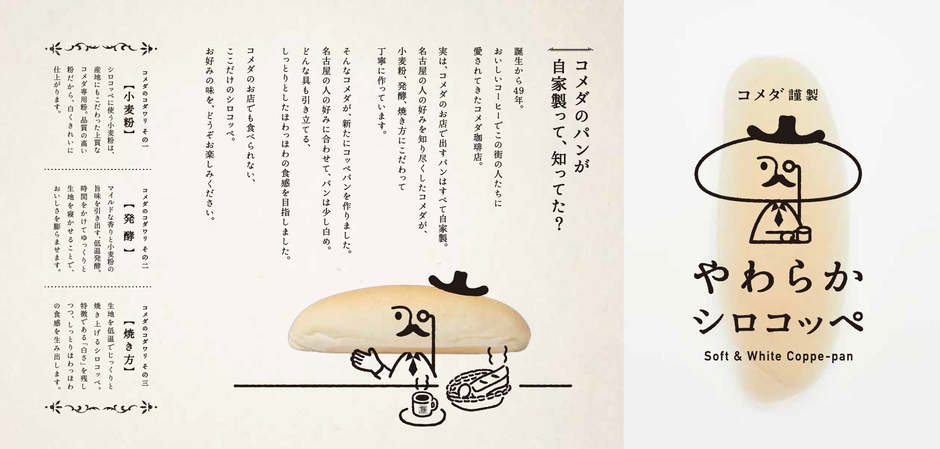 コメダのパンが
自家製って、知ってた？
誕生から49年。
おいしいコーヒーでこの街の人たちに
愛されてきたコメダ珈琲店。
実は、コメダのお店で出すパンはすべて自家製。
名古屋の人の好みを知り尽くしたコメダが、
小麦粉、発酵、焼き方にこだわって
丁寧に作っています。
そんなコメダが、新たにコッペパンを作りました。
名古屋の人の好みに合わせて、パンは少し白め。
どんな具も引き立てる、
しっとりとしたほわっほわの食感を目指しました。
コメダのお店でも食べられない、
ここだけのシロコッペ。
お好みの味を、どうぞお楽しみください。
コメダのコダワリ その一
【小麦粉】
シロコッペに使う小麦粉は、
産地にもこだわった上質な
コメダ専用粉。品質の高い
粉だから、白くきれいに
仕上がります。
コメダのコダワリ その二
【発酵】
マイルドな香りと小麦粉の
旨味を引き出す、低温発酵。
時間をかけてゆっくりと
生地を寝かせることで、
おいしさを膨らませます。
コメダのコダワリ その三
【焼き方】
生地を低温でじっくりと
焼き上げるシロコッペ。
特徴である「白さ」を残し
つつ、しっとりほわっほわ
の食感を生み出します。
コメダ謹製
やわらか
シロコッペ
Soft & White Coppe-pan